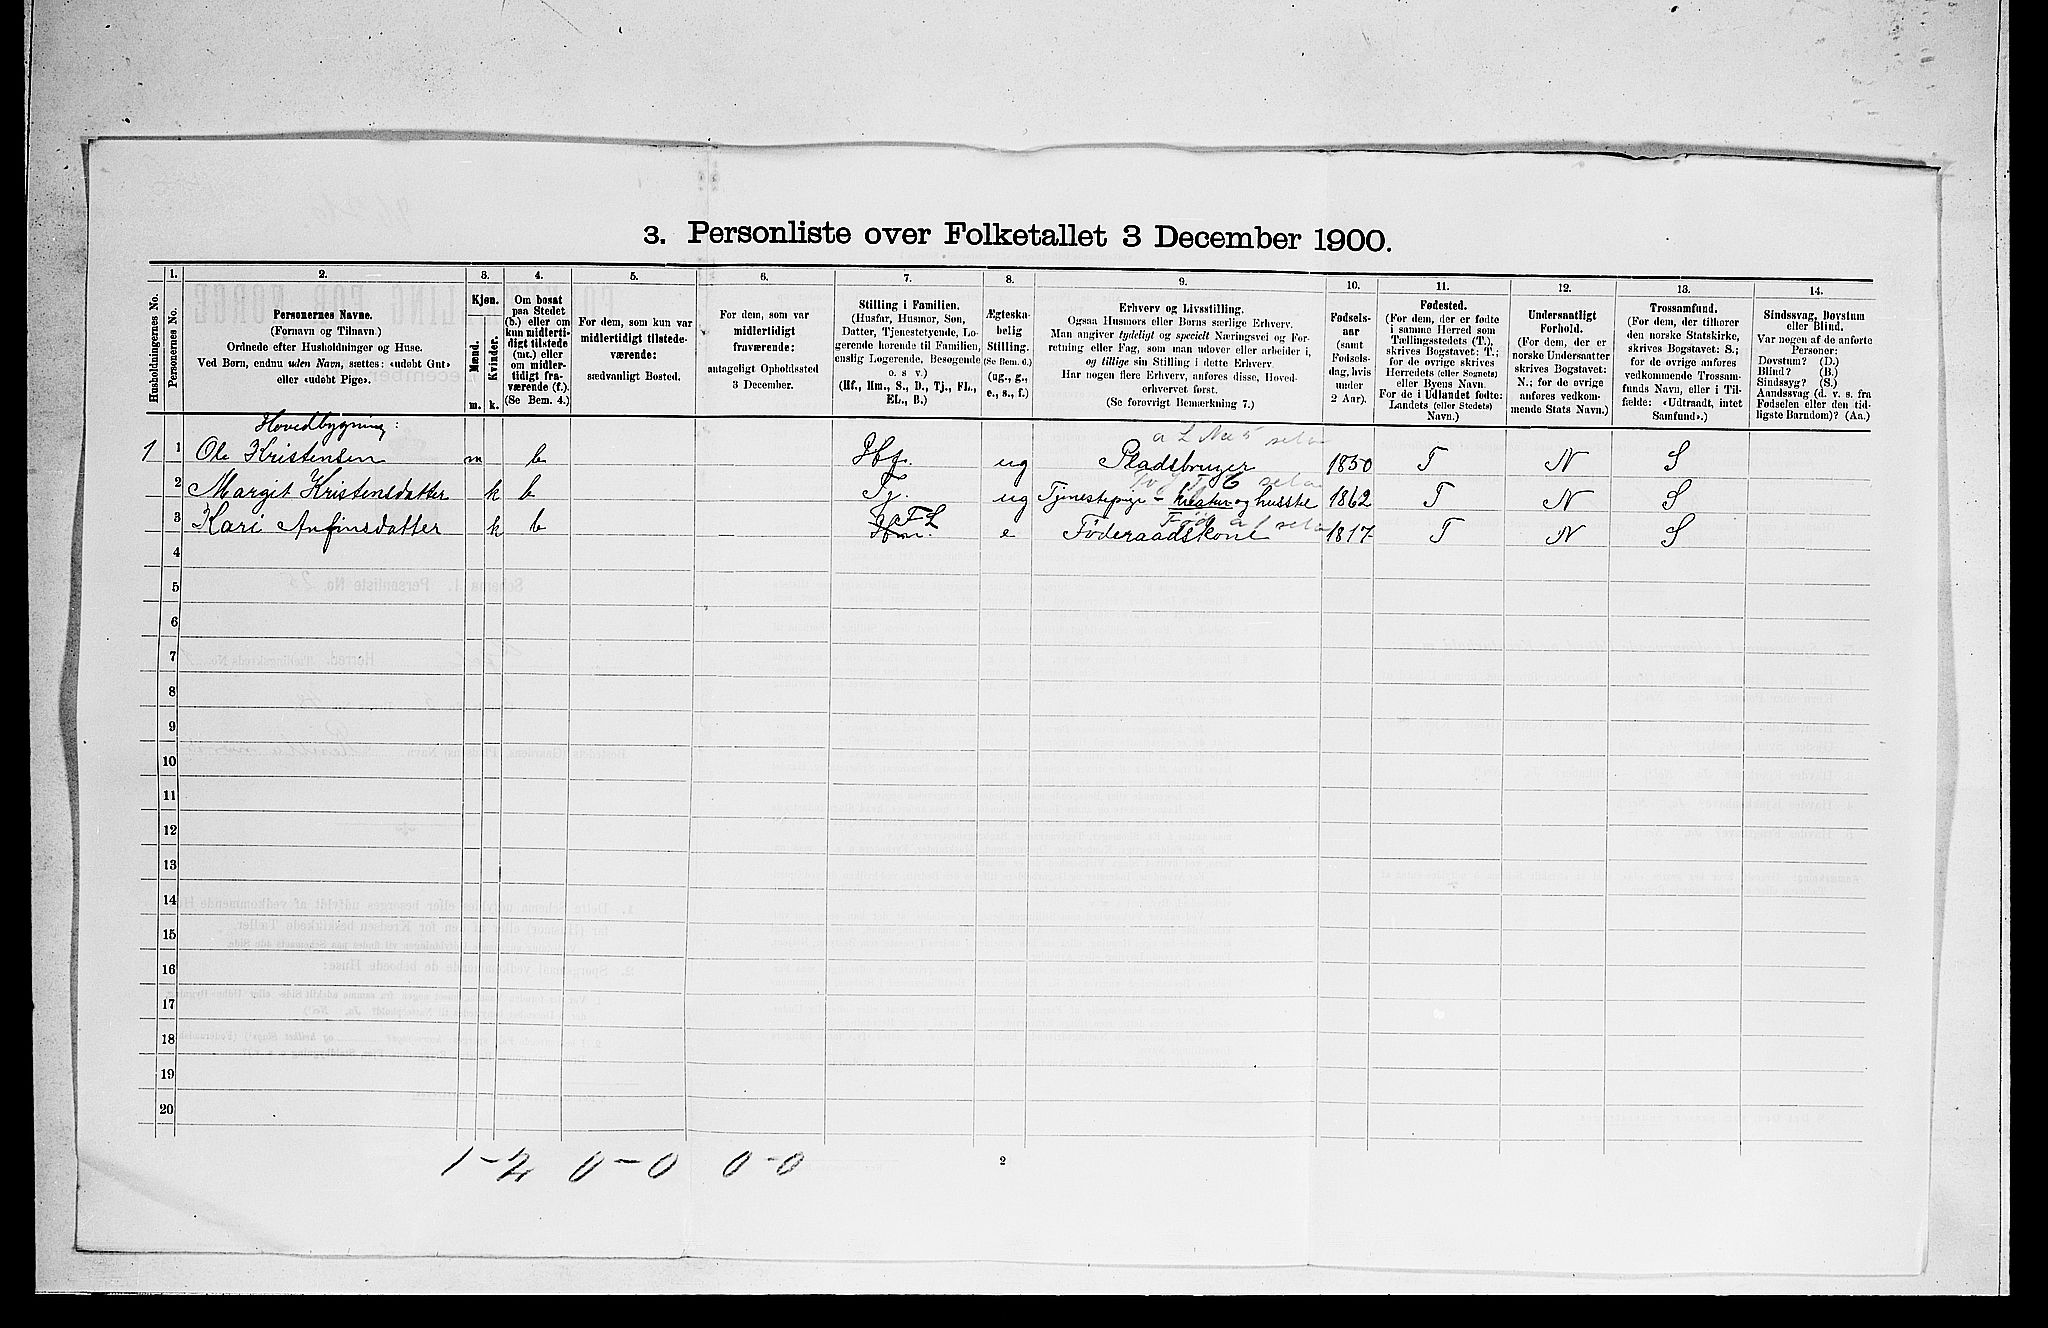 3. Personliste over Folketallet 3 December 1900.
1. 2. 3. 4. 5. 6. 7. 8. 9. 10. 11. 12. 13. 14.
Husholdningernes No.
Personernes No.
Personernes Navne.
(Fornavn og Tilnavn.)
Ordnede efter Husholdninger og Huse.
Ved Børn, endnu uden Navn, sættes: «udøbt Gut»
eller «udøbt Pige».
Kjøn.
Mænd.
Kvinder.
m. k.
Om bosat
paa Stedet
(b.) eller om
kun midlerti-
digt tilstede
(mt.) eller
om midler-
tidigt fra-
værende (f.).
(Se Bem. 4.)
For dem, som kun var
midlertidigt tilstede-
værende:
sædvanligt Bosted.
For dem, som var
midlertidigt
fraværende:
antageligt Opholdssted
3 December.
Stilling i Familien.
(Husfar, Husmor, Søn,
Datter, Tjenestetyende, Lo-
gerende hørende til Familien,
enslig Logerende, Besøgende
o. s v.)
(Hf., Hm., S., D., Tj., FL.,
EL., B.)
Ægteska-
belig
Stilling.
(Se Bem. 6.)
(ug., g.,
e., s., f.)
Erhverv og Livsstilling.
Ogsaa Husmors eller Børns særlige Erhverv.
Man angiver tydeligt og specielt Næringsvei og For-
retning eller Fag, som man udøver eller arbeider i,
og tillige sin Stilling i dette Erhverv.
Har nogen flere Erhverv, anføres disse, Hoved-
erhvervet først.
(Se forøvrigt Bemærkning 7.)
Fødsels-
aar
(samt
Fødsels-
dag, hvis
under
2 Aar).
Fødested.
(For dem, der er fødte
i samme Herred som
Tællingsstedets (T.),
skrives Bogstavet: T.;
for de øvrige skrives
Herredets (eller Sognets)
eller Byens Navn.
For de i Udlandet fødte:
Landets (eller Stedets)
Navn.)
Undersaatligt
Forhold.
(For dem, der er
norske Undersaatter
skrives Bogstavet:
N.; for de øvrige
anføres vedkom-
mende Stats Navn.)
Trossamfund.
(For dem, der tilhører
den norske Statskirke,
skrives Bogstavet: S.;
for de øvrige anføres
vedkommende Trossam-
funds Navn, eller i Til-
fælde: «Udtraadt, intet
Samfund».)
Sindssvag, Døvstum
eller Blind.
Var nogen af de anførte
Personer:
Døvstum? (D.)
Blind? (B.)
Sindssyg? (S.)
Aandssvag (d. v. s. fra
Fødselen eller den tid-
ligste Barndom)? (Aa.)
Hovedbygning:
1 1 Ole Kristensen m b Hf. ug Pladsbruger 1850 T N S
2 Margit Kristensdatter k b Tj. ug Tjenestepige – kreatur og husste 1862 T N S
3 Kari Anfinsdatter k b Hm. FL e Føderaadskone 1817 T N S
4
5
6
7
8
9
10
11
12
13
14
15
16
17
18
19
20
1–2 0–0 0–0
2